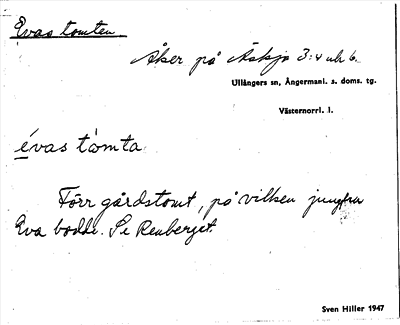 Evas tomten
Åker på Äskja 3:4 och 6.
Ullångers sn, Ångermanl. s. doms. tg.
Västernorrl. l.
évas tomta
Förr gårdstomt, på vilken jungfru
Eva bodde. Se Renberget.
Sven Hiller 1947